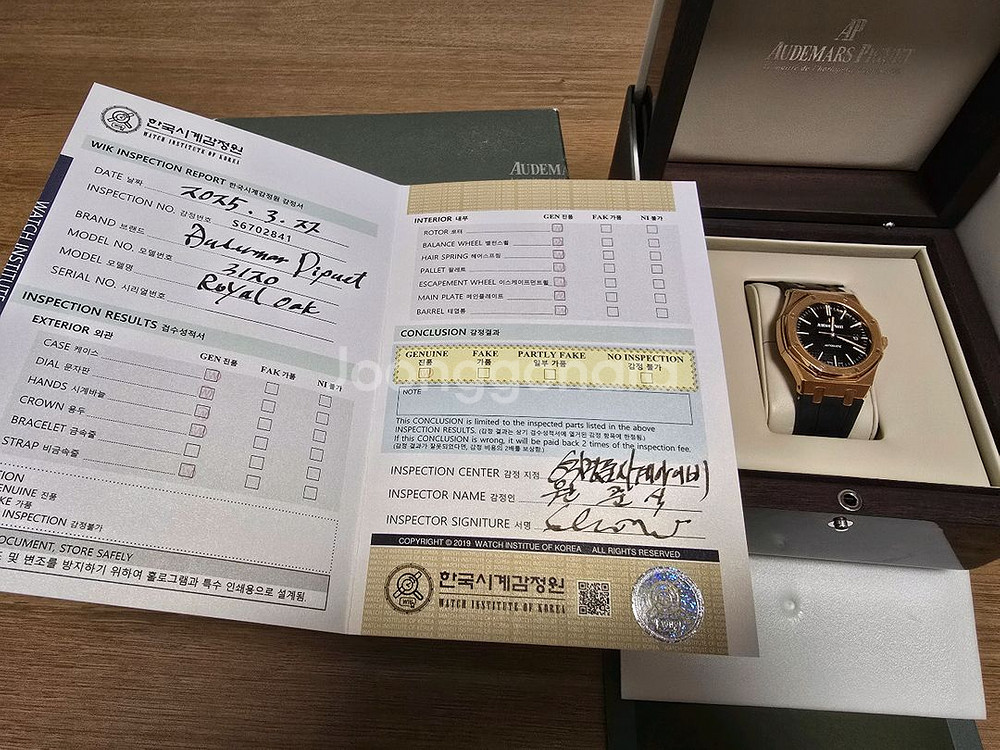 한국시계감정원
WATCH INSTITUTE OF KOREA
WIK INSPECTION REPORT 한국시계감정원 감정서
DATE 날짜 2025. 3.
INSPECTION NO. 감정번호 S6702841
BRAND 브랜드
MODEL NO. 모델번호 3120
MODEL 모델명 Royal Oak
SERIAL NO. 시리얼번호
INSPECTION RESULTS 검수성적서
EXTERIOR 외관 GEN 진품 FAK 가품 NI 불가
CASE 케이스
DIAL 문자판
HANDS 시계바늘
CROWN 용두
BRACELET 금속줄
STRAP 비금속줄
GENUINE 진품
가품
INSPECTION 감정불가
DOCUMENT, STORE SAFELY
및 변조를 방지하기 위하여 홀로그램과 특수 인쇄용으로 설계됨.
INTERIOR 내부 GEN 진품 FAK 가품 NI 불가
ROTOR 로터
BALANCE WHEEL 밸런스휠
HAIR SPRING 헤어스프링
PALLET 팔레트
ESCAPEMENT WHEEL 이스케이프먼트휠
MAIN PLATE 메인플레이트
BARREL 태엽통
CONCLUSION 감정결과
GENUINE FAKE PARTLY FAKE NO INSPECTION
진품 가품 일부 가품 감정 불가
NOTE
This CONCLUSION is limited to the inspected parts listed in the above
INSPECTION RESULTS. (감정 결과는 상기 검수성적서에 열거된 감정 항목에 한정됨.)
If this CONCLUSION is wrong, it will be paid back 2 times of the inspection fee.
(감정 결과가 잘못되었다면, 감정 비용의 2배를 보상함.)
INSPECTION CENTER 감정 지점
INSPECTOR NAME 감정인
INSPECTOR SIGNITURE 서명
COPYRIGHT © 2019 WATCH INSTITUE OF KOREA ALL RIGHTS RESERVED
한국시계감정원
WATCH INSTITUTE OF KOREA
WIK
AUDEM
AP
AUDEMARS PIGUET
Joonggonara